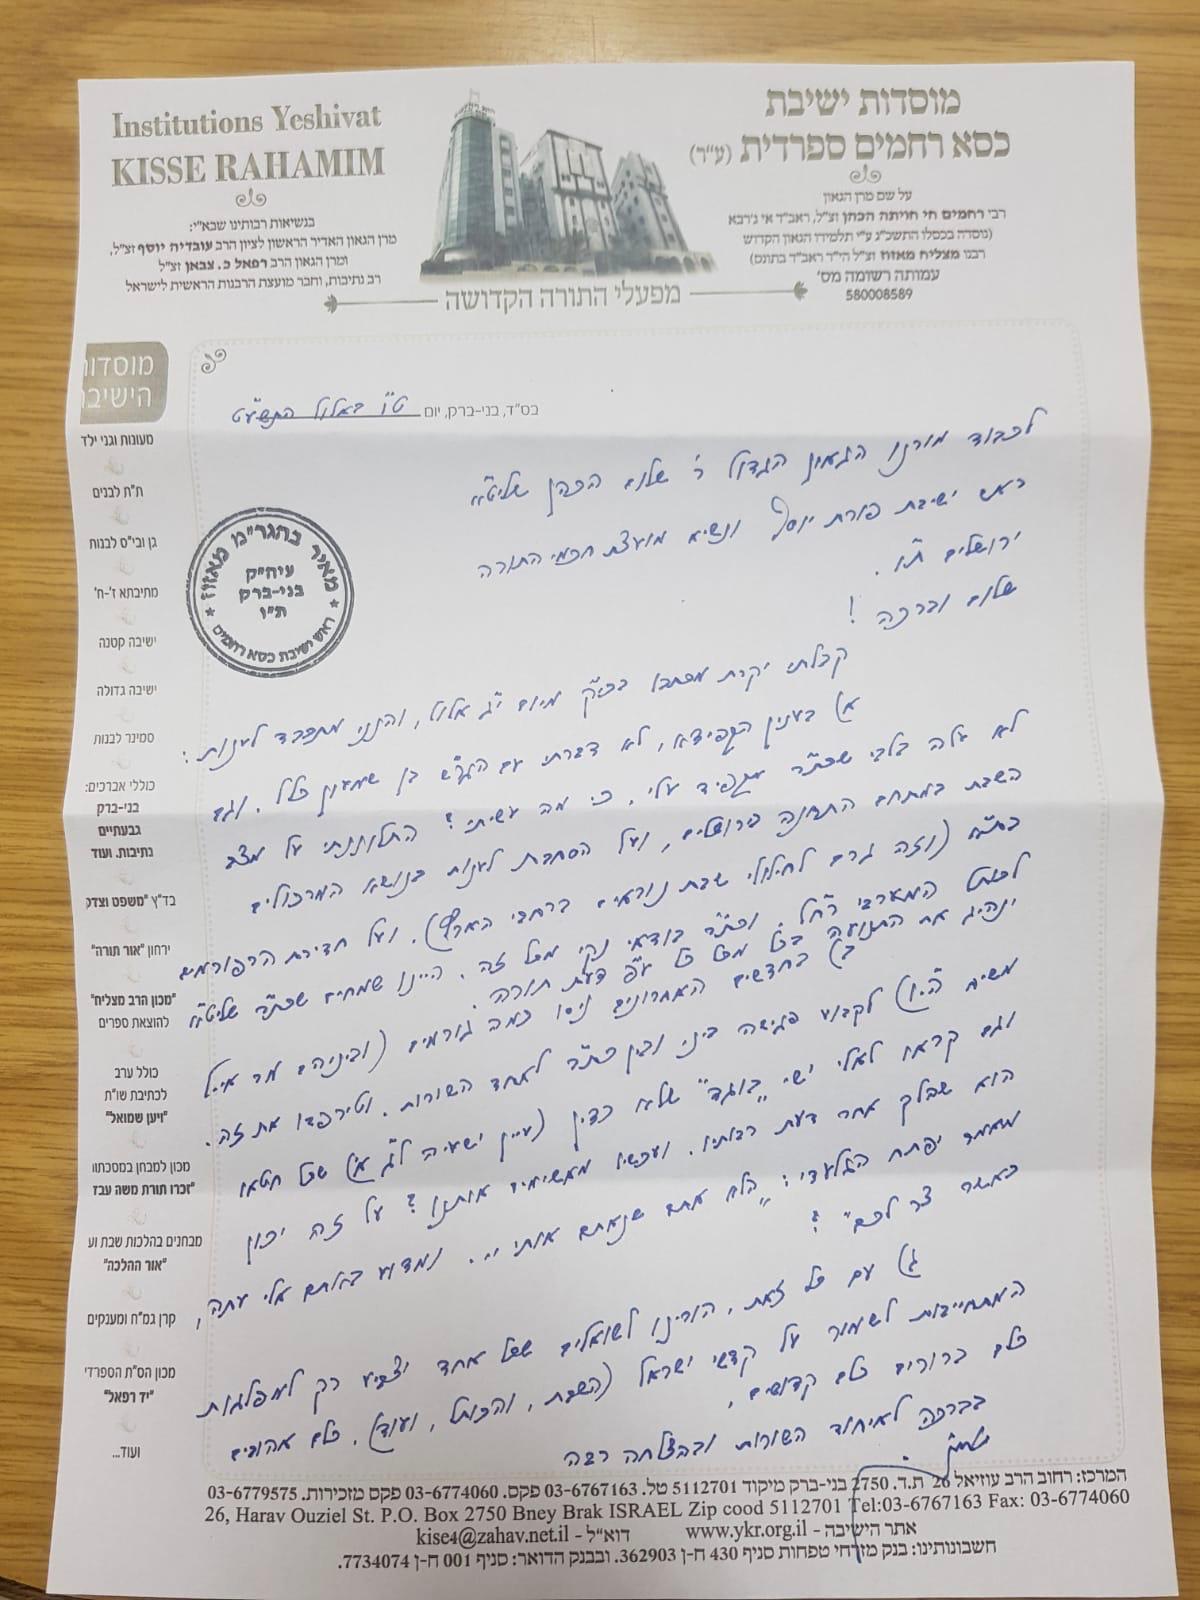 Institutions Yeshivat
KISSE RAHAMIM
בנשיאות רבותינו שבא"י:
מרן הגאון האדיר הראשון לציון הרב עובדיה יוסף זצ"ל,
ומרן הגאון הרב רפאל כ. צבאן זצ"ל
רב נתיבות, וחבר מועצת הרבנות הראשית לישראל
מוסדות ישיבת
כסא רחמים ספרדית (ע"ר)
על שם מרן הגאון
רבי רחמים חי חויתה הכהן זצ"ל, ראב"ד אי ג'רבא
(נוסדה בכסלו התשכ"ג ע"י תלמידו הגאון הקדוש
רבנו מצליח מאזוז זצ"ל הי"ד ראב"ד בתונס)
עמותה רשומה מס'
580008589
מפעלי התורה הקדושה
מוסדות
הישיבה
מעונות וגני ילד
ת"ת לבנים
גן ובי"ס לבנות
מתיבתא ז'-ח'
ישיבה קטנה
ישיבה גדולה
סמינר לבנות
כוללי אברכים:
בני-ברק
גבעתיים
נתיבות. ועוד
בד"ץ "משפט וצדק
ירחון "אור תורה"
"מכון הרב מצליח"
להוצאת ספרים
כולל ערב
לכתיבת שו"ת
"ויען שמואל"
מכון למבחן במסכתו
"זכרו תורת משה עבד
מבחנים בהלכות שבת וע
"אור ההלכה"
קרן גמ"ח ומענקים
מכון הס"ת הספרדי
"יד רפאל"
ועוד...
בס"ד, בני-ברק, יום ט"ו באלול התשע"ט
מאיר בהגר"מ מאזוז
עיח"ק
בני-ברק
ת"ו
ראש ישיבת כסא רחמים
לכבוד מורנו הגאון הגדול ר' שלום הכהן שליט"א
ראש ישיבת פורת יוסף ונשיא מועצת חכמי התורה
ירושלים ת"ו.
שלום וברכה!
קבלתי יקרת מכתבו בכי"ק מיום י"ג אלול, והנני מתכבד לענות:
א) בענין הקפידא, לא דברתי עם הגר"ש בן שמעון כלל. וגם
לא עלה בלבי שכת"ר מקפיד עלי, כי מה עשיתי? התלוננתי על מצב
השבת במתחם התחנה בירושלים, ועל הסחבת לענות בנושא המרכולים
בת"א (וזה גרם לחילולי שבת נוראים ברחבי הארץ), ועל חדירת הרפורמים
לכותל המערבי רח"ל. וכת"ר בודאי נקי מכל זה. היינו שמחים שכת"ר שליט"א
ינהיג את התנועה בכל מכל כל ע"פ דעת תורה.
ב) בחדשים האחרונים ניסו כמה גורמים (וביניהם מר אייל
משיח הי"ו) לקבוע פגישה ביני ובין כת"ר לאחד השורות. וטירפדו את זה.
וגם קראו לאלי ישי "בוגד" שלא כדין (עיין ישעיה ל"ג א) שכל חטאו
הוא שהלך אחר דעת רבותיו. ועכשיו מאשימים אותנו? על זה יכון
מאמר יפתח הגלעדי: "הלא אתם שנאתם אותי וו'. ומדוע באתם אלי עתה,
כאשר צר לכם"?
ג) עם כל זאת, הורינו לשואלים שכל אחד יצביע רק למפלגות
המתחייבות לשמור על קדשי ישראל (השבת, והכותל, ועוד). כלם אהובים
כלם ברורים כלם קדושים,
בברכה לאיחוד השורות ובהצלחה רבה
המרכז: רחוב הרב עוזיאל 26 ת.ד. 2750 בני-ברק מיקוד 5112701 טל. 03-6767163 פקס. 03-6774060 פקס מזכירות. 03-6779575
26, Harav Ouziel St. P.O. Box 2750 Bney Brak ISRAEL Zip cood 5112701 Tel:03-6767163 Fax: 03-6774060
אתר הישיבה - www.ykr.org.il דוא"ל - kise4@zahav.net.il
חשבונותינו: בנק מזרחי טפחות סניף 430 ח-ן 362903. ובבנק הדואר: סניף 001 ח-ן 7734074.